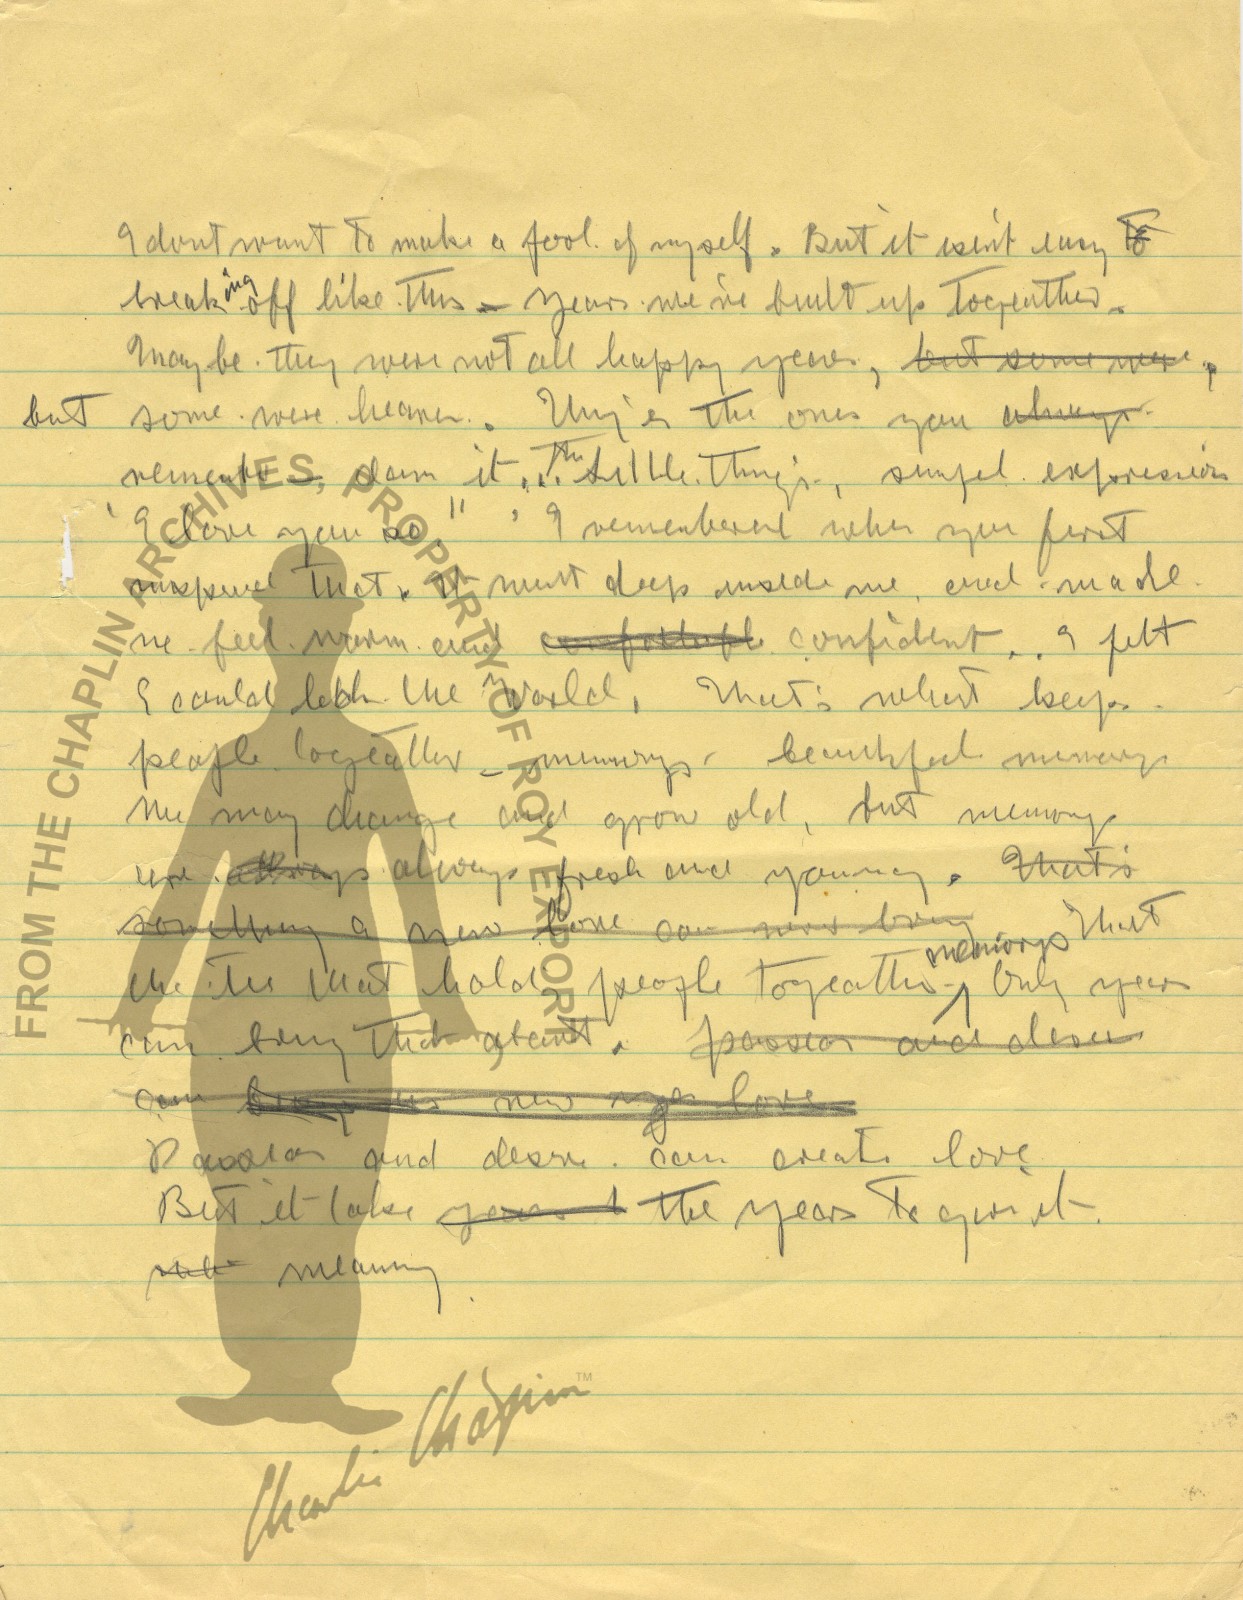 I dont want to make a fool of myself. But it isn't easy to
breaking off like this – years we've built up togeather.
May be they were not all happy years, but some were,
but some were heaven. They're the ones you always
remember, damn it... the little things, simpel expression
"I love you so." I remembered when you first
that. It went deep inside me and made
me feel warm and confident.. I felt
I could lick the world, That's what keeps
people togeather – memorys – beautiful memorys
We may change and grow old, but memorys
are always always fresh and young. That's
something a new love can never bring That
the tie that holds people togeather – memorys Only years
can bring that about. passion and desire
can bring us new love
Passion and desire can create love
But it take years the years to give it
meaning.
FROM THE CHAPLIN ARCHIVES, PROPERTY OF ROY EXPORT
Charlie Chaplin™